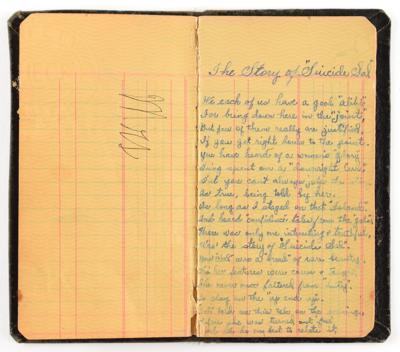 The Story of "Suicide Sal"
We each of us have a good "alibi"
For being down here in the "joint",
But few of them really are justified,
If you get right down to the point.
You have heard of a woman's glory
Being spent on a "downright cur",
But you can't always judge the
As true, being told by her.
As long as I stayed on that "Island"
And heard "confidence" tales from the "gals",
There was only one interesting & truthful,
Was the story of "Suicide Sal".
Now "Sal" was a of rare beauty,
Tho' her features were coarse & tough,
She never once faltered from "duty"
To play on the "up and up".
told me this tale on the
she was turned out
do my best to relate it